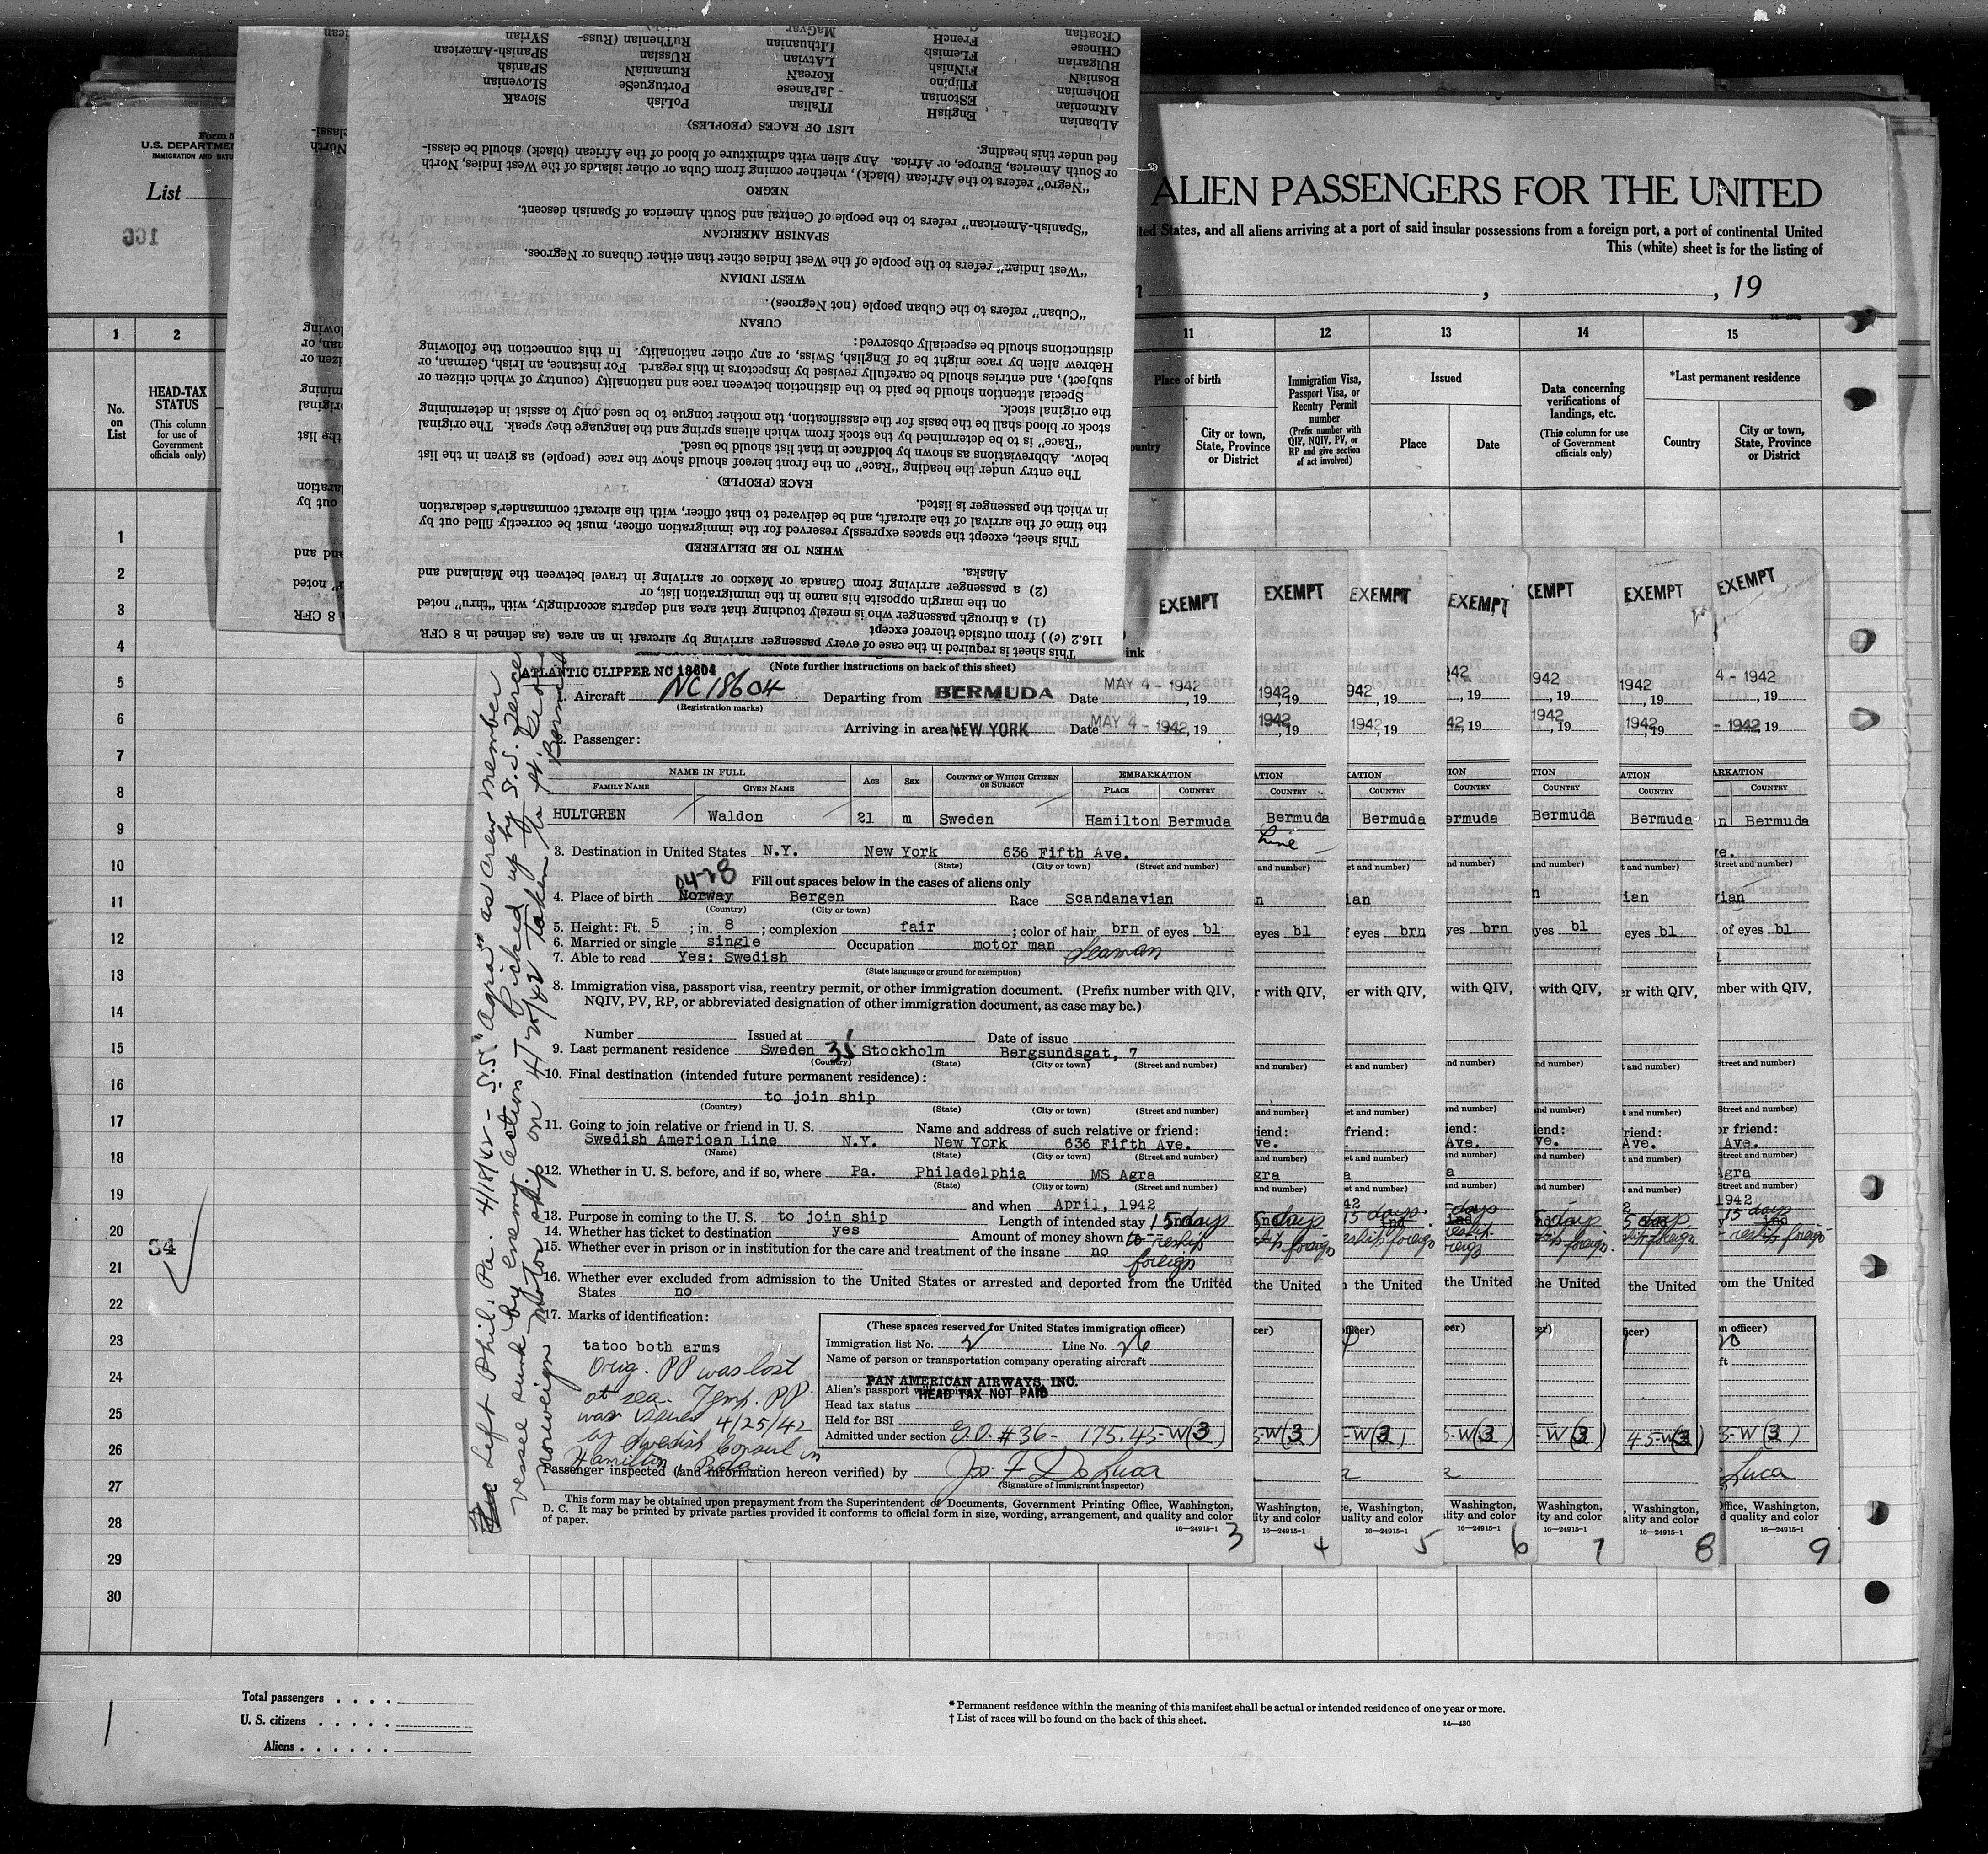 Form
U.S. DEPARTME
IMMIGRATION AND NATU
List
166
ALIEN PASSENGERS FOR THE UNITED
ited States, and all aliens arriving at a port of said insular possessions from a foreign port, a port of continental United
This (white) sheet is for the listing of
, 19
1 2 11 12 13 14 15
No. on List
HEAD-TAX STATUS
(This column for use of Government officials only)
Place of birth
ountry
City or town, State, Province or District
Immigration Visa, Passport Visa, or Reentry Permit number
(Prefix number with QIV, NQIV, PV, or RP and give section of act involved)
Issued
Place
Date
Data concerning verifications of landings, etc.
(This column for use of Government officials only)
*Last permanent residence
Country
City or town, State, Province or District
This sheet is required in the case of every passenger arriving by aircraft in an area (as defined in 8 CFR
116.2 (c)) from outside thereof except
(1) a through passenger who is merely touching that area and departs accordingly, with "thru" noted
on the margin opposite his name in the immigration list, or
(2) a passenger arriving from Canada or Mexico or arriving in travel between the Mainland and
Alaska.
WHEN TO BE DELIVERED
This sheet, except the spaces expressly reserved for the immigration officer, must be correctly filled out by
the time of the arrival of the aircraft, and be delivered to that officer, with the aircraft commander's declaration
in which the passenger is listed.
RACE (PEOPLE)
The entry under the heading "Race" on the front hereof should show the race (people) as given in the list
below. Abbreviations as shown by boldface in that list should be used.
"Race" is to be determined by the stock from which aliens spring and the language they speak. The original
stock or blood shall be the basis for the classification, the mother tongue to be used only to assist in determining
the original stock.
Special attention should be paid to the distinction between race and nationality (country of which citizen or
subject), and entries should be carefully revised by inspectors in this regard. For instance, an Irish, German, or
Hebrew alien by race might be of English, Swiss, or any other nationality. In this connection the following
distinctions should be especially observed:
CUBAN
"Cuban" refers to the Cuban people (not Negroes).
WEST INDIAN
"West Indian" refers to the people of the West Indies other than either Cubans or Negroes.
SPANISH AMERICAN
"Spanish-American" refers to the people of Central and South America of Spanish descent.
NEGRO
"Negro" refers to the African (black), whether coming from Cuba or other islands of the West Indies, North
or South America, Europe, or Africa. Any alien with admixture of blood of the African (black) should be classi-
fied under this heading.
LIST OF RACES (PEOPLES)
ALbanian EnglisH ITalian PoLish SlovaK
ARmenian EStonian JaPanese PortugeSe SLovenian
BOhemian Filipino KoreaN RumaniaN SPanish
BosniaN FiNnish LAtvian RUssian SPanish-American
BUlgarian FLemish LIthuanian RuThenian (Russ- SYrian
CHinese FrencH MaGyar
CRoatian
EXEMPT EXEMPT EXEMPT EXEMPT EXEMPT EXEMPT EXEMPT
ink
(Note further instructions on back of this sheet)
ATLANTIC CLIPPER NC 18604
1. Aircraft NC18604 Departing from BERMUDA Date MAY 4 - 1942, 19
(Registration marks)
Arriving in area at NEW YORK Date MAY 4 - 1942, 19
2. Passenger:
NAME IN FULL AGE SEX COUNTRY OF WHICH CITIZEN OR SUBJECT EMBARKATION
FAMILY NAME GIVEN NAME PLACE COUNTRY
HULTGREN Waldon 21 m Sweden Hamilton Bermuda
3. Destination in United States N.Y. New York 636 Fifth Ave.
(State) (City or town) (Street and number)
04-28
Fill out spaces below in the cases of aliens only
4. Place of birth Norway Bergen Race Scandanavian
(Country) (City or town)
5. Height: Ft. 5 ; in. 8 ; complexion fair ; color of hair brn of eyes bl
6. Married or single single Occupation motor man Seaman
7. Able to read Yes: Swedish
(State language or ground for exemption)
8. Immigration visa, passport visa, reentry permit, or other immigration document. (Prefix number with QIV,
NQIV, PV, RP, or abbreviated designation of other immigration document, as case may be.)
Number Issued at Date of issue
9. Last permanent residence Sweden 35 Stockholm Bergsundsgat, 7
(Country) (State) (City or town) (Street and number)
10. Final destination (intended future permanent residence):
to join ship
(Country) (State) (City or town) (Street and number)
11. Going to join relative or friend in U. S. Name and address of such relative or friend:
Swedish American Line N.Y. New York 636 Fifth Ave.
(Name) (State) (City or town) (Street and number)
12. Whether in U. S. before, and if so, where Pa. Philadelphia MS Agra
(State) (City or town) (Street and number)
and when April, 1942
13. Purpose in coming to the U. S. to join ship Length of intended stay 15 days
14. Whether has ticket to destination yes Amount of money shown to reship
15. Whether ever in prison or in institution for the care and treatment of the insane no foreign
16. Whether ever excluded from admission to the United States or arrested and deported from the United
States no
17. Marks of identification:
tatoo both arms
Orig. PP was lost
at sea. Temp. PP
was issued 4/25/42
by Swedish Consul in
Hamilton, Bda.
(These spaces reserved for United States immigration officer)
Immigration list No. 2 Line No. 26
Name of person or transportation company operating aircraft
PAN AMERICAN AIRWAYS, INC.
Alien's passport
HEAD TAX NOT PAID
Head tax status
Held for BSI
Admitted under section G.O. #36- 175.45-W(3)
Passenger inspected (and information hereon verified) by Jos F De Luca
(Signature of Immigrant Inspector)
This form may be obtained upon prepayment from the Superintendent of Documents, Government Printing Office, Washington,
D. C. It may be printed by private parties provided it conforms to official form in size, wording, arrangement, and quality and color
of paper.
16—24915-1
3 4 5 6 7 8 9
Left Phil. Pa. 4/18/42 - S.S. "Agra" as crew member
vessel sunk by enemy action picked up by S.S.
Norweign Motor ship on 4/20/42 taken to St.
1
2
3
4
5
6
7
8
9
10
11
12
13
14
15
16
17
18
19
20
34
21
22
23
24
25
26
27
28
29
30
Total passengers . . . .
U. S. citizens . . . . .
Aliens . . . . . .
* Permanent residence within the meaning of this manifest shall be actual or intended residence of one year or more.
† List of races will be found on the back of this sheet.
14—430